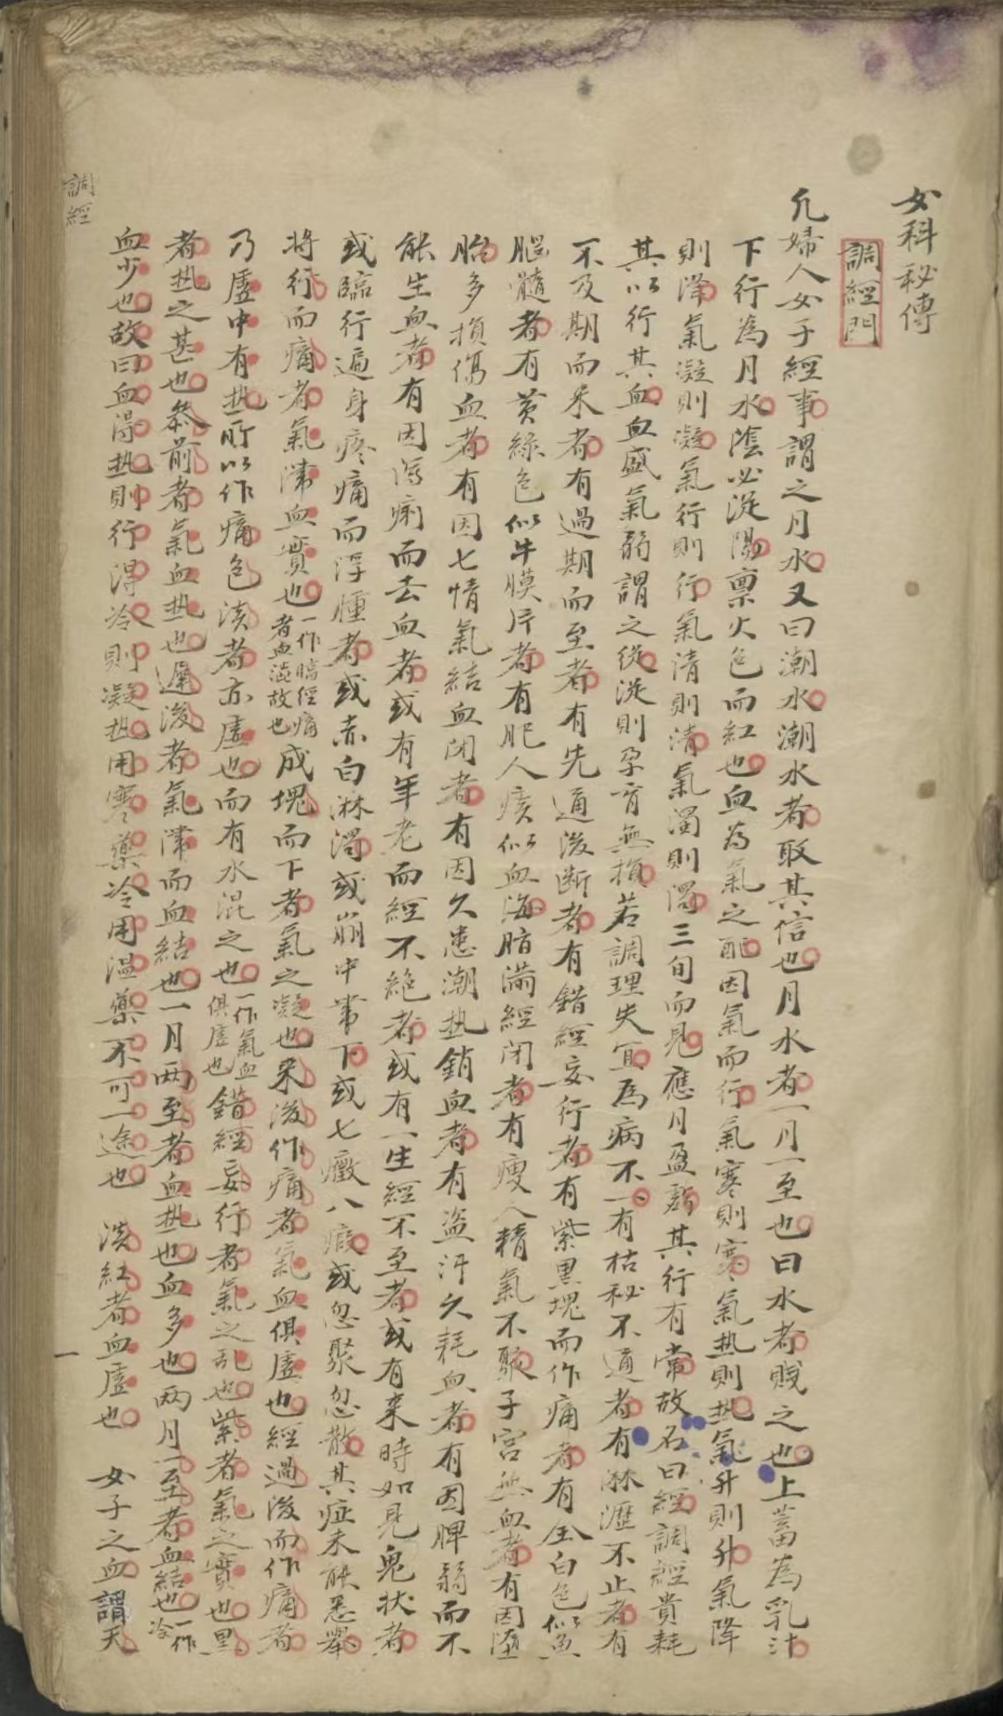 女科秘傳
調經門
凢婦人女子經事謂之月水又曰潮水潮水者取其信也月水者一月一至也曰水者賤之也上蓄為乳汁
下行為月水陰必從陽稟火色而紅也血為氣之配因氣而行氣寒則寒氣热則热氣升則升氣降
則降氣凝則凝氣行則行氣清則清氣濁則濁三旬而見應月盈虧其行有常故名曰經調經貴耗
其氣以行其血血盛氣弱謂之從從則孕育無損若調理失宜為病不一有枯秘不通者有淋瀝不止者有
不及期而来者有過期而至者有先通後断者有錯經妄行者有紫黑塊而作痛者有全白色似魚
腦髓者有黃綠色似牛膜片者有肥人痰似血海脂滿經闭者有瘦人精氣不聚子宮無血者有因墮
胎多損傷血者有因七情氣結血闭者有因久患潮热銷血者有盜汗久耗血者有因脾弱而不
能生血者有因瀉痢而去血者或有年老而經不絶者或有一生經不至者或有来時如見鬼狀者
或臨行遍身疼痛而浮腫者或赤白淋濁或崩中帶下或七癥八瘕或忽聚忽散其症未能悉舉
將行而痛者氣滞血實也一作臨經痛者血淡故也成塊而下者氣之凝也来後作痛者氣血俱虛也經過後而作痛者
乃虛中有热所以作痛色淡者亦虛也而有水混之也一作氣血俱虛也錯經妄行者氣之乱也紫者氣之實也黑
者热之甚也叅前者氣血热也遲後者氣滞而血結也一月两至者血热也血多也两月一至者血結也一作冷
血少也故曰血得热則行得冷則凝热用寒藥冷用温藥不可一途也　淡紅者血虛也　女子之血謂天
調經
一